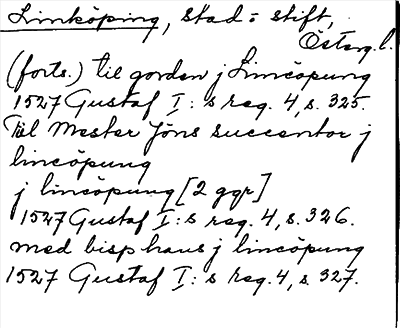 Linköping, stad = stift,
Österg. l.
(forts.) til gorden j Limcöpung
1527 Gustaf I:s reg. 4, s. 325.
Till Mester Jöns succentor j
lincöpung
j lincöpung [2 ggr]
1527 Gustaf I:s reg. 4, s. 326.
med bisp hans j lincöpung
1527 Gustaf I:s reg. 4, s. 327.